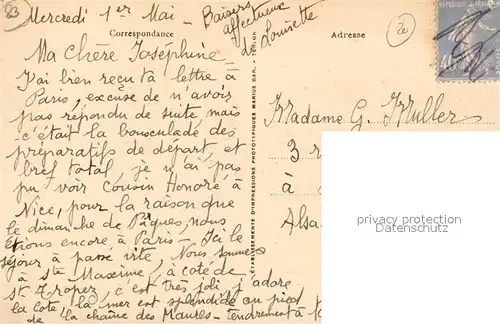 23
Mercredi 1er Mai – Baisers
affectueux
de Louisette
Correspondance
Adresse
20
Ma Chère Joséphine
J'ai bien reçu ta lettre à
Paris, excuse de n'avoir
pas répondu de suite mais
c'était la bousculade des
préparatifs de départ, et
bref total, je n'ai pas
pu voir Cousin Honoré à
Nice, pour la raison que
le dimanche de Pâques, nous
étions encore à Paris – J'ai le
séjour à passé vite, Nous sommes
à Ste Maxime, à côté de
St Tropez, c'est très joli, j'adore
la côte, la mer est splendide au pied
de la chaîne des Maures – tendrement à
ÉTABLISSEMENTS D'IMPRESSIONS PHOTOTYPIQUES MARIUS BAR. - TOULON
Madame G. Muller
3 r
à
Alsa
privacy protection
Datenschutz